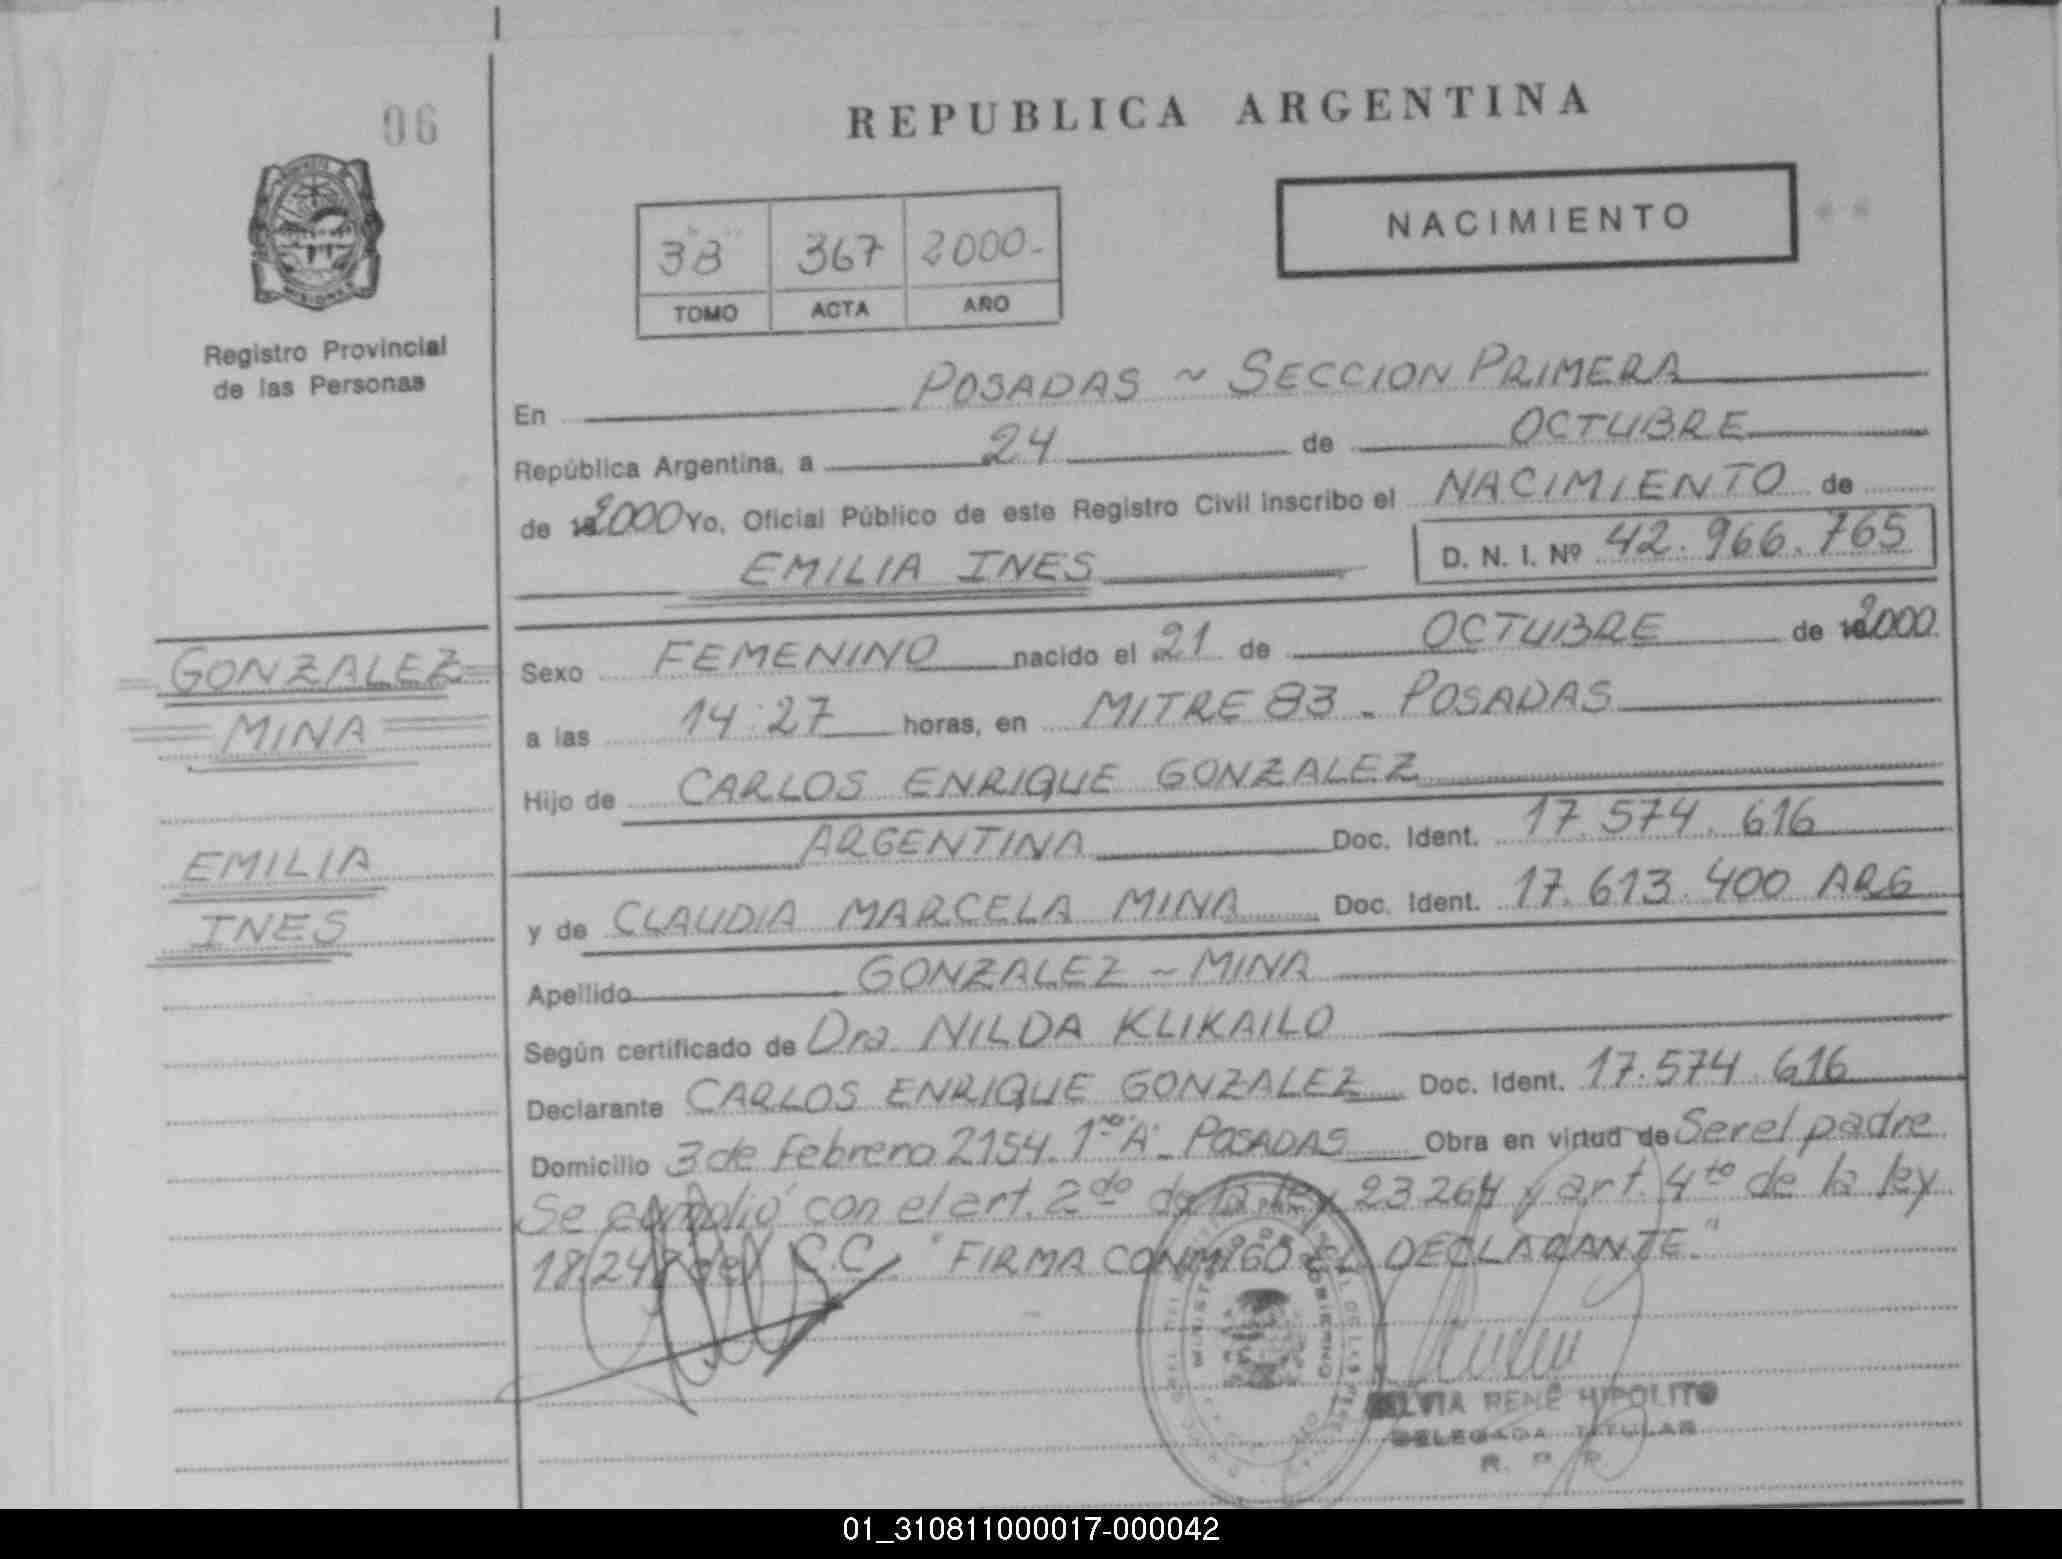 06
REPUBLICA ARGENTINA
NACIMIENTO
3B 367 2000-
TOMO ACTA AÑO
MISIONES
Registro Provincial
de las Personas
En POSADAS ~ SECCION PRIMERA
República Argentina, a 24 de OCTUBRE
de 2000 Yo, Oficial Público de este Registro Civil inscribo el NACIMIENTO de
EMILIA INES D. N. I. Nº 42.966.765
GONZALEZ
MINA
EMILIA
INES
Sexo FEMENINO nacido el 21 de OCTUBRE de 2000
a las 14:27 horas, en MITRE 83 - POSADAS
Hijo de CARLOS ENRIQUE GONZALEZ
ARGENTINA Doc. Ident. 17.574.616
y de CLAUDIA MARCELA MINA Doc. Ident. 17.613.400 ARG
Apellido GONZALEZ ~ MINA
Según certificado de Dra. NILDA KLIKAILO
Declarante CARLOS ENRIQUE GONZALEZ Doc. Ident. 17.574.616
Domicilio 3 de Febrero 2154. 1ro "A" - POSADAS Obra en virtud de Ser el padre
Se cumplió con el art. 2do de la ley 23.264 y art. 4to de la ley
18.248 del C.C. "FIRMA CONMIGO EL DECLARANTE."
SILVIA RENÉ HIPOLITO
DELEGADA TITULAR
R. P. P.
01_310811000017-000042